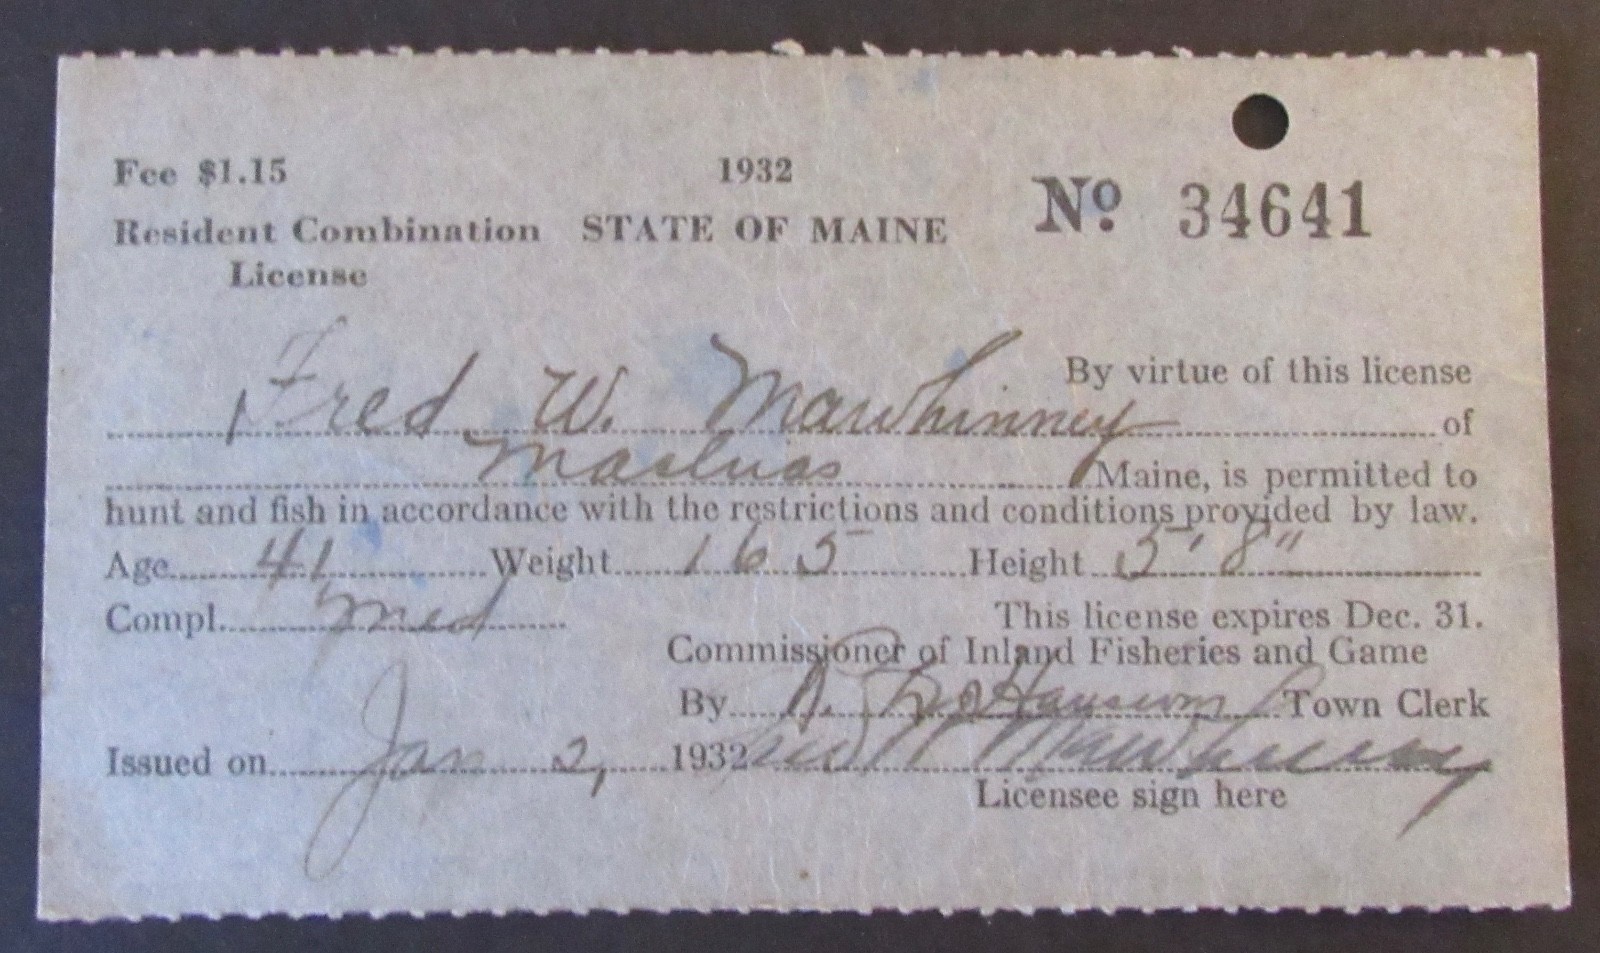 Fee $1.15 1932
Resident Combination STATE OF MAINE No. 34641
License
By virtue of this license
Fred W. Mawhinney of
Machias Maine, is permitted to
hunt and fish in accordance with the restrictions and conditions provided by law.
Age 41 Weight 165 Height 5' 8"
Compl. Med This license expires Dec. 31.
Commissioner of Inland Fisheries and Game
By Town Clerk
Issued on Jan 2, 1932 Fred W Mawhinney
Licensee sign here